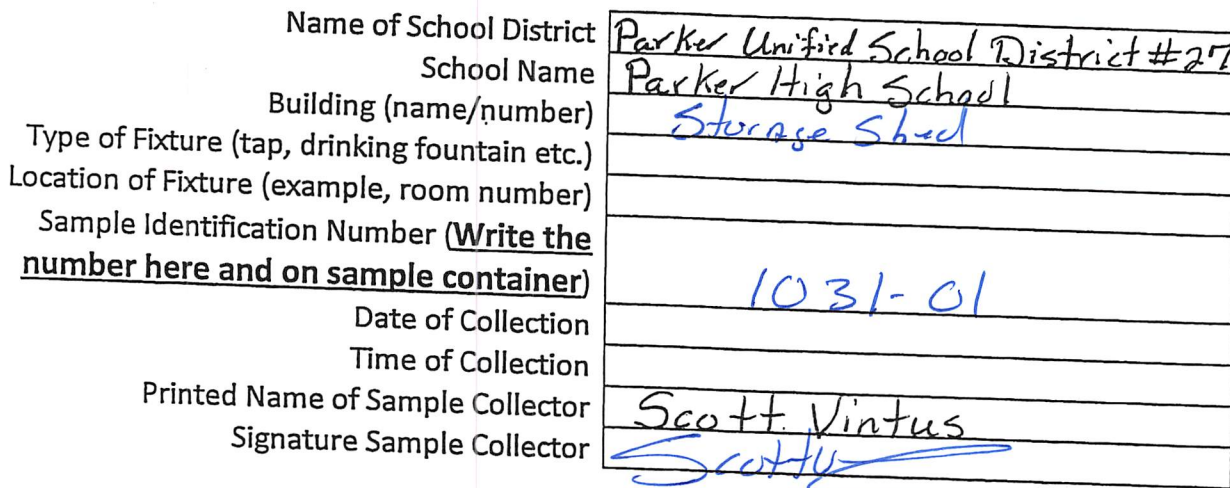 Name of School District Parker Unified School District #27
School Name Parker High School
Building (name/number) Storage Shed
Type of Fixture (tap, drinking fountain etc.)
Location of Fixture (example, room number)
Sample Identification Number (Write the
number here and on sample container) 1031-01
Date of Collection
Time of Collection
Printed Name of Sample Collector Scott Vintus
Signature Sample Collector Scotty